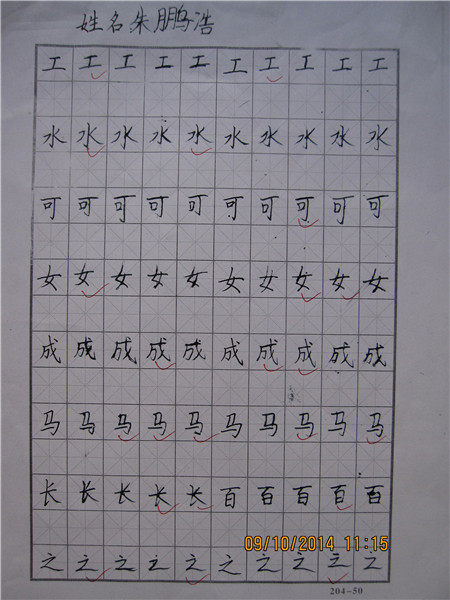 姓名朱鹏浩
工工工工工工工工工工
水水水水水水水水水水
可可可可可可可可可可
女女女女女女女女女女
成成成成成成成成成成
马马马马马马马马马马
长长长长长百百百百百
之之之之之之之之之之
09/10/2014 11:15
204-50